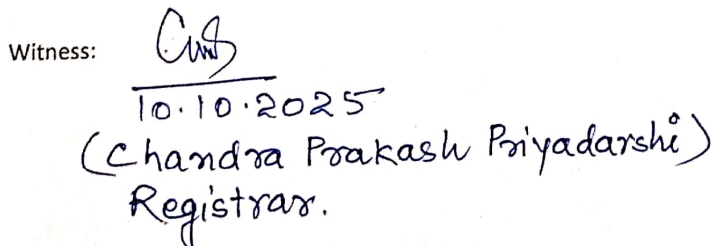 Witness:
10.10.2025
(Chandra Prakash Priyadarshi)
Registrar.